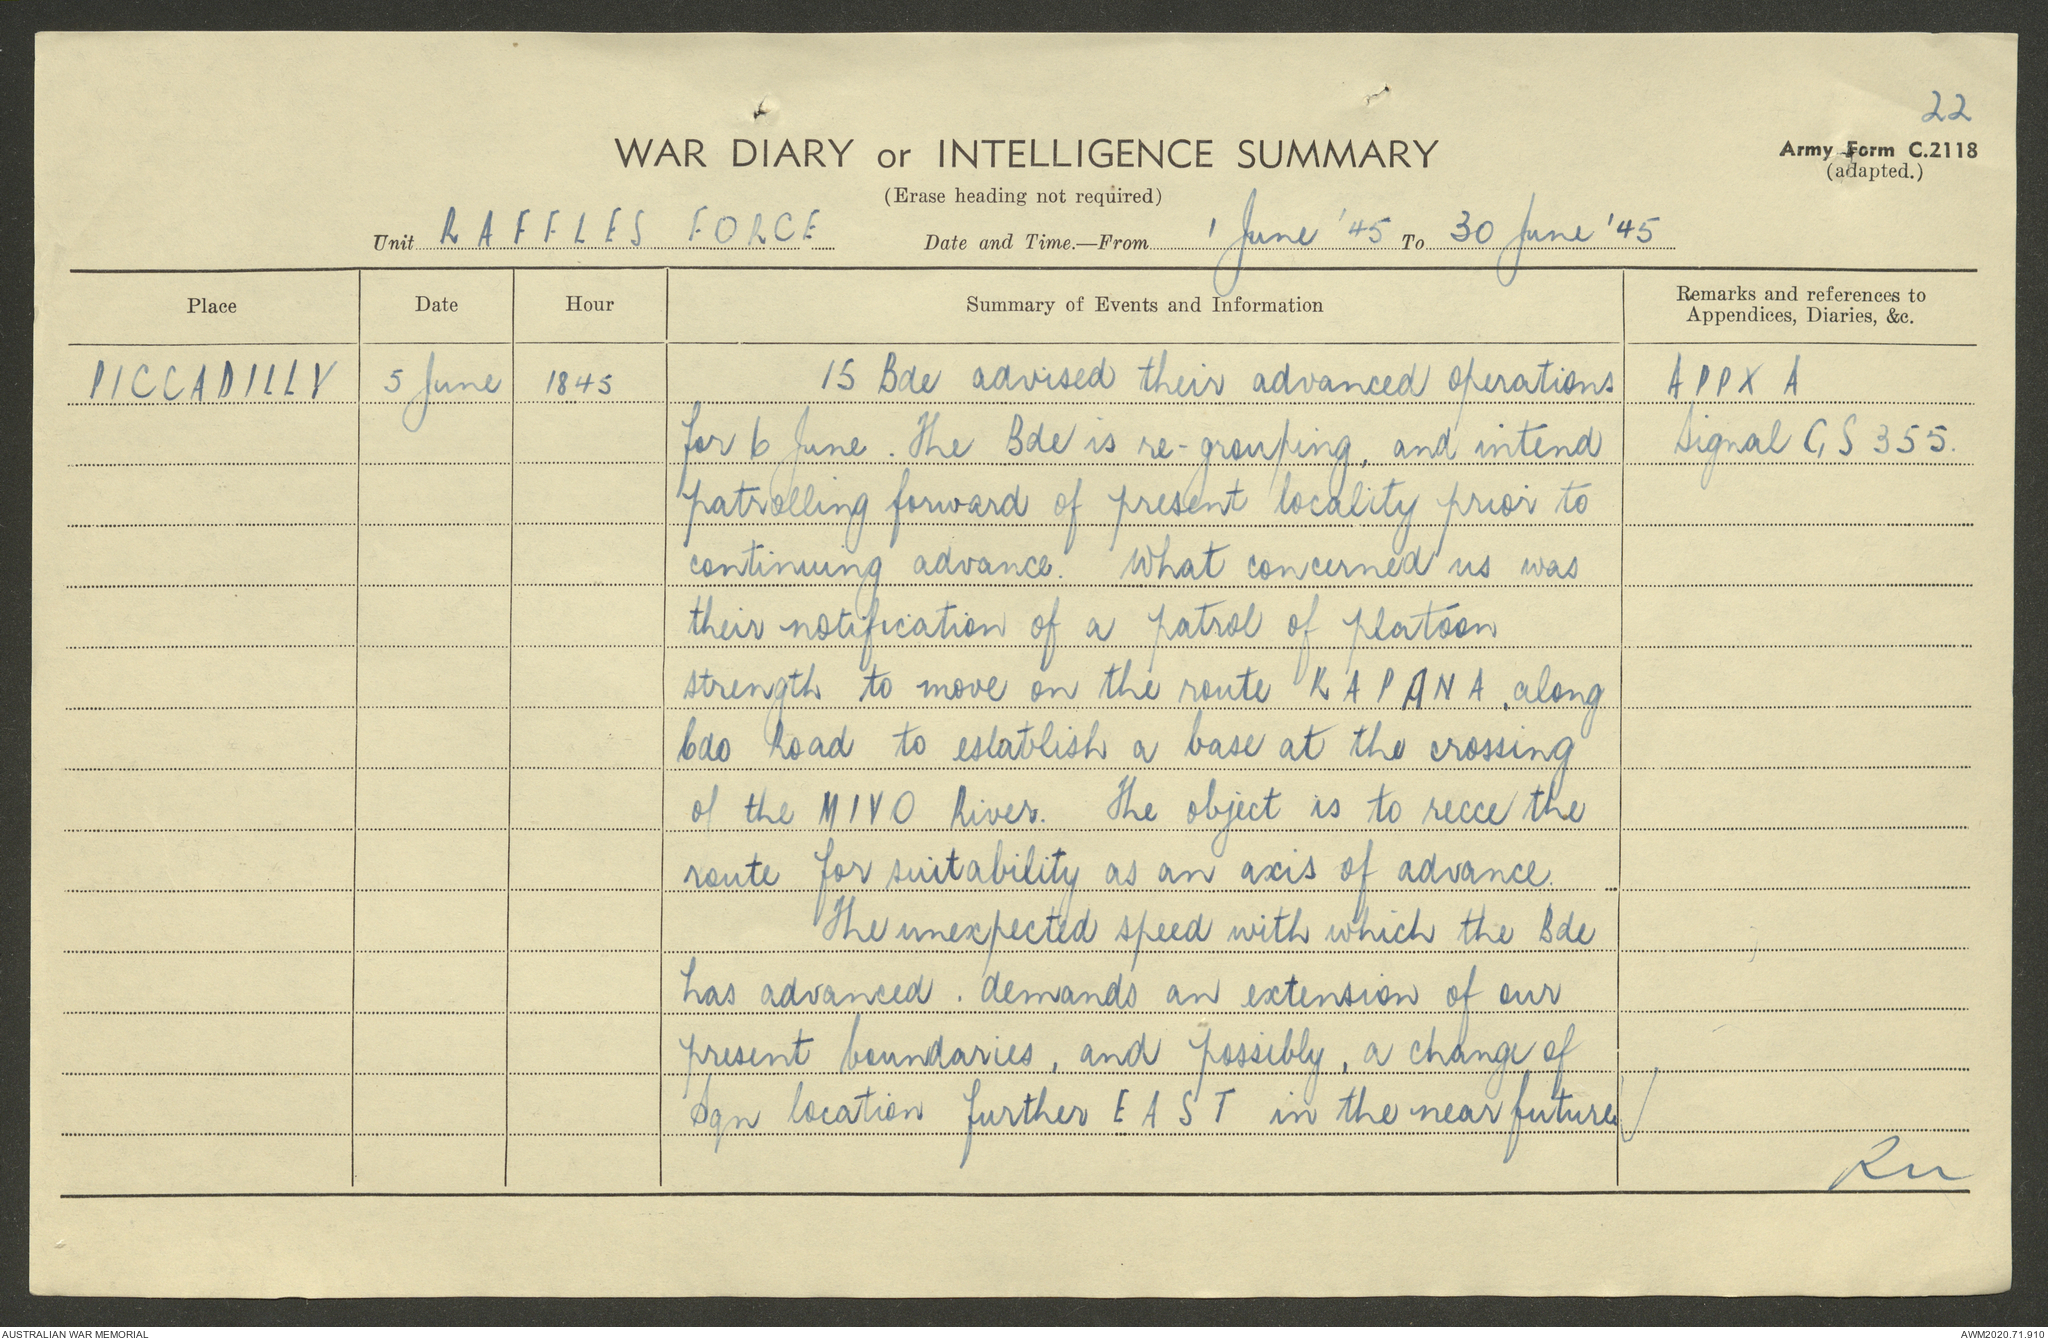 22
WAR DIARY or INTELLIGENCE SUMMARY
Army Form C.2118
(adapted.)
(Erase heading not required)
Unit RAFFLES FORCE Date and Time.—From 1 June '45 To 30 June '45
Place Date Hour Summary of Events and Information Remarks and references to
Appendices, Diaries, &c.
PICCADILLY 5 June 1845 15 Bde advised their advanced operations APPX A
for 6 June. The Bde is re-grouping, and intend Signal GS 355.
patrolling forward of present locality prior to
continuing advance. What concerned us was
their notification of a patrol of platoon
strength to move on the route KAPANA, along
Cdo Road to establish a base at the crossing
of the MIVO River. The object is to recce the
route for suitability as an axis of advance.
The unexpected speed with which the Bde
has advanced. demands an extension of our
present boundaries, and possibly, a change of
Sqn location further EAST in the near future
AUSTRALIAN WAR MEMORIAL
AWM2020.71.910